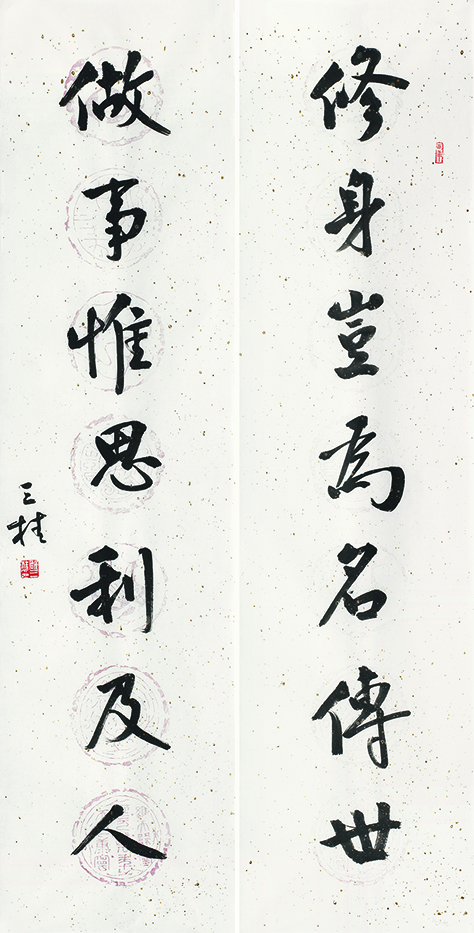 修身豈為名傳世
做事惟思利及人
三桂